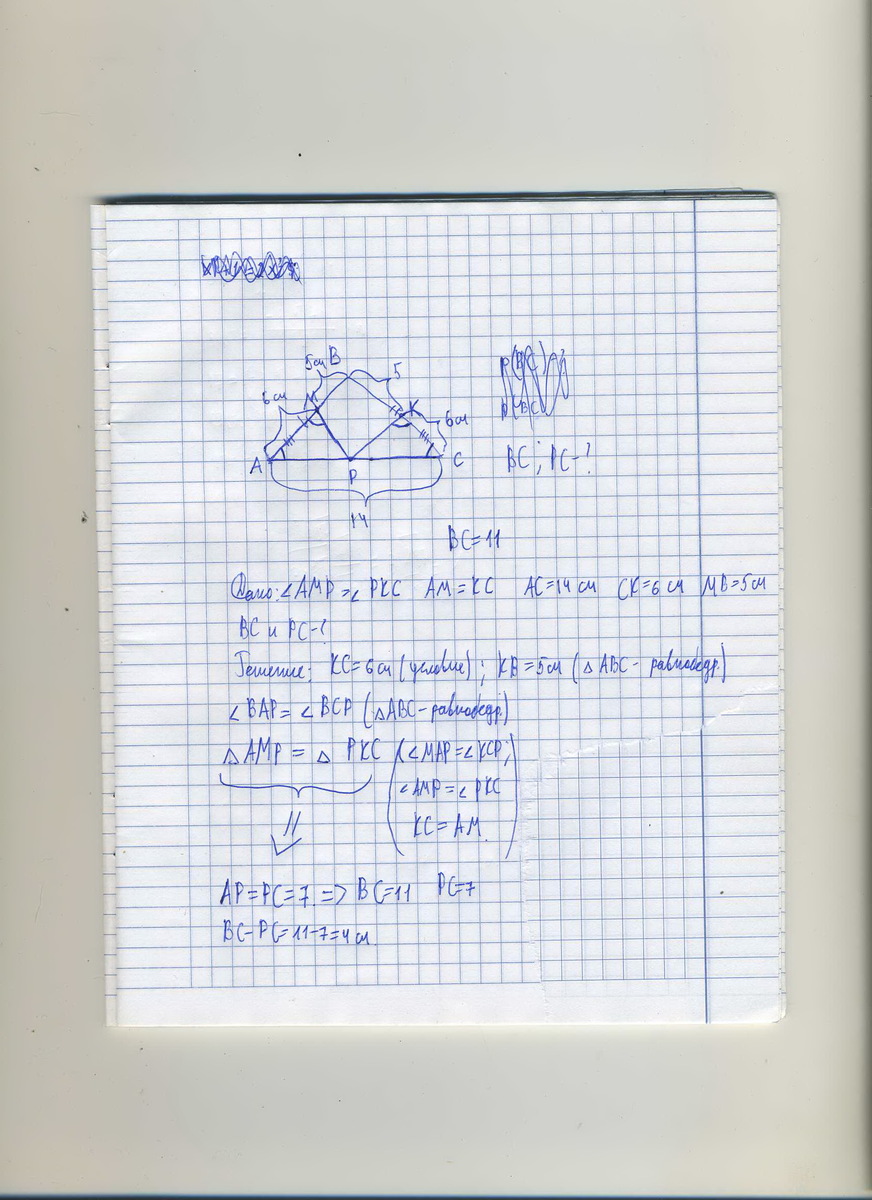 5см B 5
6см M K 6см
A P C
14
BC; PC-?
BC=11
Дано: ∠AMP = ∠PKC AM = KC AC=14 см CK=6 см MB=5см
BC и PC-?
Решение: KC=6см (условие); KB=5см (△ABC - равнобедр.)
∠BAP = ∠BCP (△ABC-равнобедр.)
△AMP = △ PKC (∠MAP=∠KCP;
∠AMP=∠PKC
KC=AM)
AP=PC=7 => BC=11 PC=7
BC-PC=11-7=4 см.